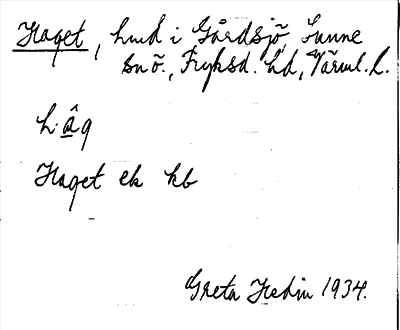 Haget, hmd i Gårdsjö, Sunne
sn ö., Fryksd. hd, Värml. l.
h. âg
Haget ek kb
Greta Hedin 1934.